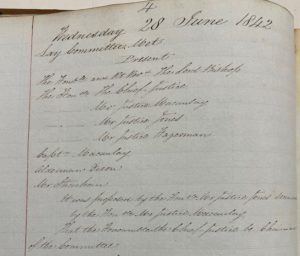 4
Wednesday 28 June 1842
Lay Committee Met
Present
The Honble and Rt Revd The Lord Bishop
The Honble The Chief Justice
Mr Justice Macaulay
Mr Justice Jones
Mr Justice Hagerman
Captn Macaulay
Alderman Dixon
Mr
It was proposed by the Honble Mr Justice Jones
by the Honble Mr Justice Macaulay
That the Honourable the Chief Justice be
of the Committee